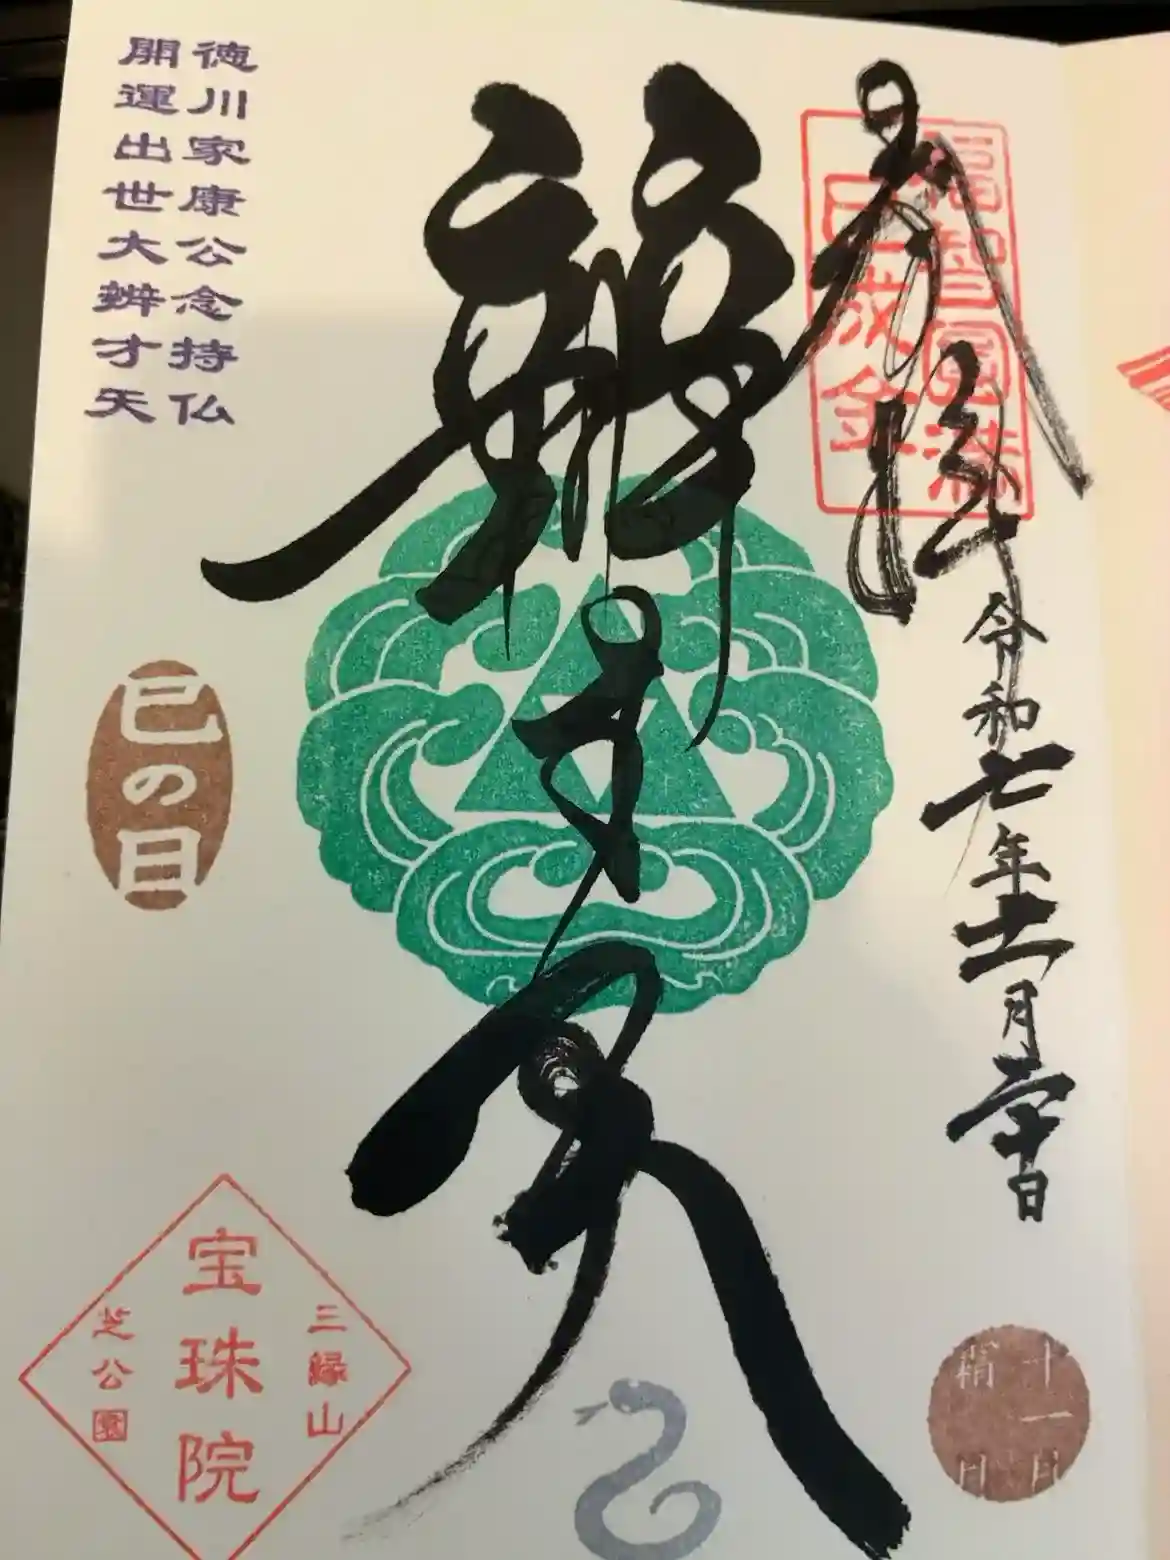 奉拝
福智圓満
巳成金
令和七年十一月二十日
辨才天
徳川家康公念持仏
開運出世大辨才天
巳の日
三縁山
宝珠院
芝公園
十一月
霜月